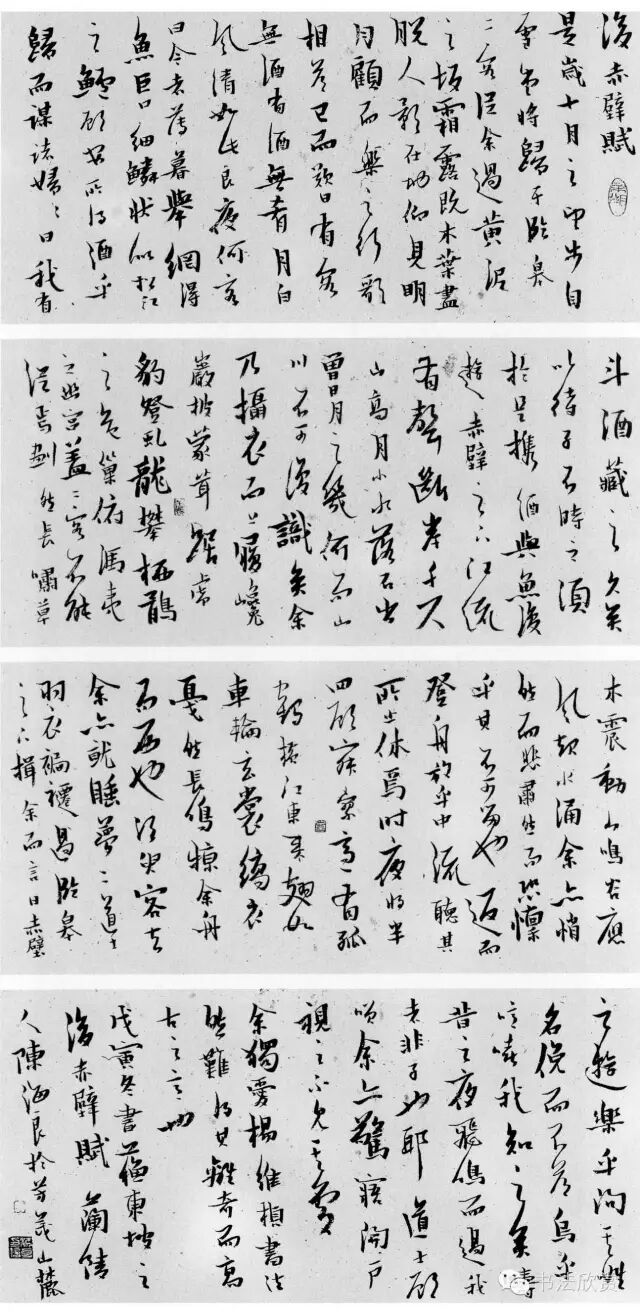 後赤壁賦
是歲十月之望步自
雪堂將歸于臨皋
二客從余過黃泥
之坂霜露既木葉盡
脫人影在地仰見明
月顧而樂之行歌
相答已而歎曰有客
無酒有酒無肴月白
風清如此良夜何客
曰今者薄暮舉網得
魚巨口細鱗狀似松江
之鱸顧安所得酒乎
歸而謀諸婦〻曰我有
斗酒藏之久矣
以待子不時之須
於是攜酒與魚復
遊赤壁之下江流
有聲斷岸千尺
山高月小水落石出
曾日月之幾何而山
川不可復識矣余
乃攝衣而上履巉
巖披蒙茸踞虎
豹登虬龍攀栖鶻
之危巢俯馮夷
之幽宮蓋二客不能
從焉劃然長嘯草
木震動山鳴谷應
風起水涌余亦悄
然而悲肅然而恐凜
乎其不可留也返而
登舟放乎中流聽其
所止休焉時夜將半
四顧寂寥適有孤
鶴橫江東來翅如
車輪玄裳縞衣
戛然長鳴掠余舟
而西也須臾客去
余亦就睡夢二道士
羽衣蹁躚過臨皋
之下揖余而言曰赤壁
之遊樂乎問其姓
名俛而不答烏乎
噫嘻我知之矣疇
昔之夜飛鳴而過我
者非子也耶道士顧
笑余亦驚寤開戶
視之不見其處
余獨愛楊維楨書法
然難得其離奇而高
古之意也
戊寅冬書蘇東坡之
後赤壁賦 蘭陵
人陳海良於芳茂山麓
书法欣赏